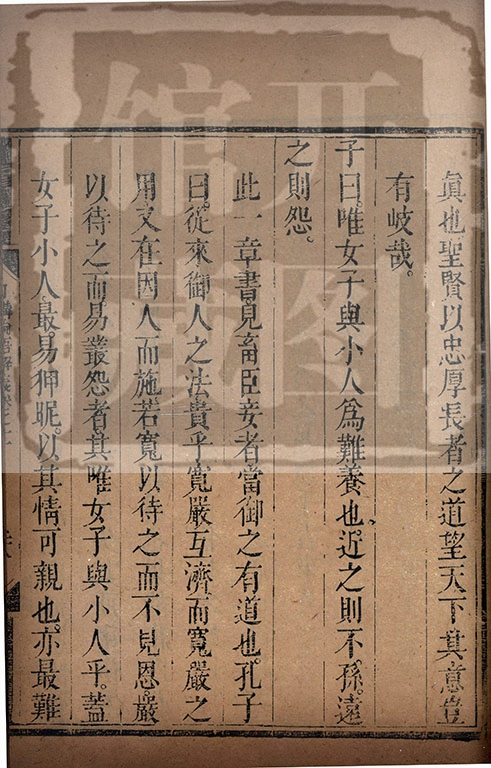 真也聖賢以忠厚長者之道望天下其意豈
有岐哉。
子曰。唯女子與小人為難養也。近之則不孫。遠
之則怨。
此一章書見畜臣妾者當御之有道也。孔子
曰。從來御人之法貴乎寬嚴互濟而寬嚴之
用又在因人而施若寬以待之而不見恩。嚴
以待之而易叢怨者其唯女子與小人乎。蓋
女子小人。最易狎昵。以其情可親也。亦最難
开图馆藏